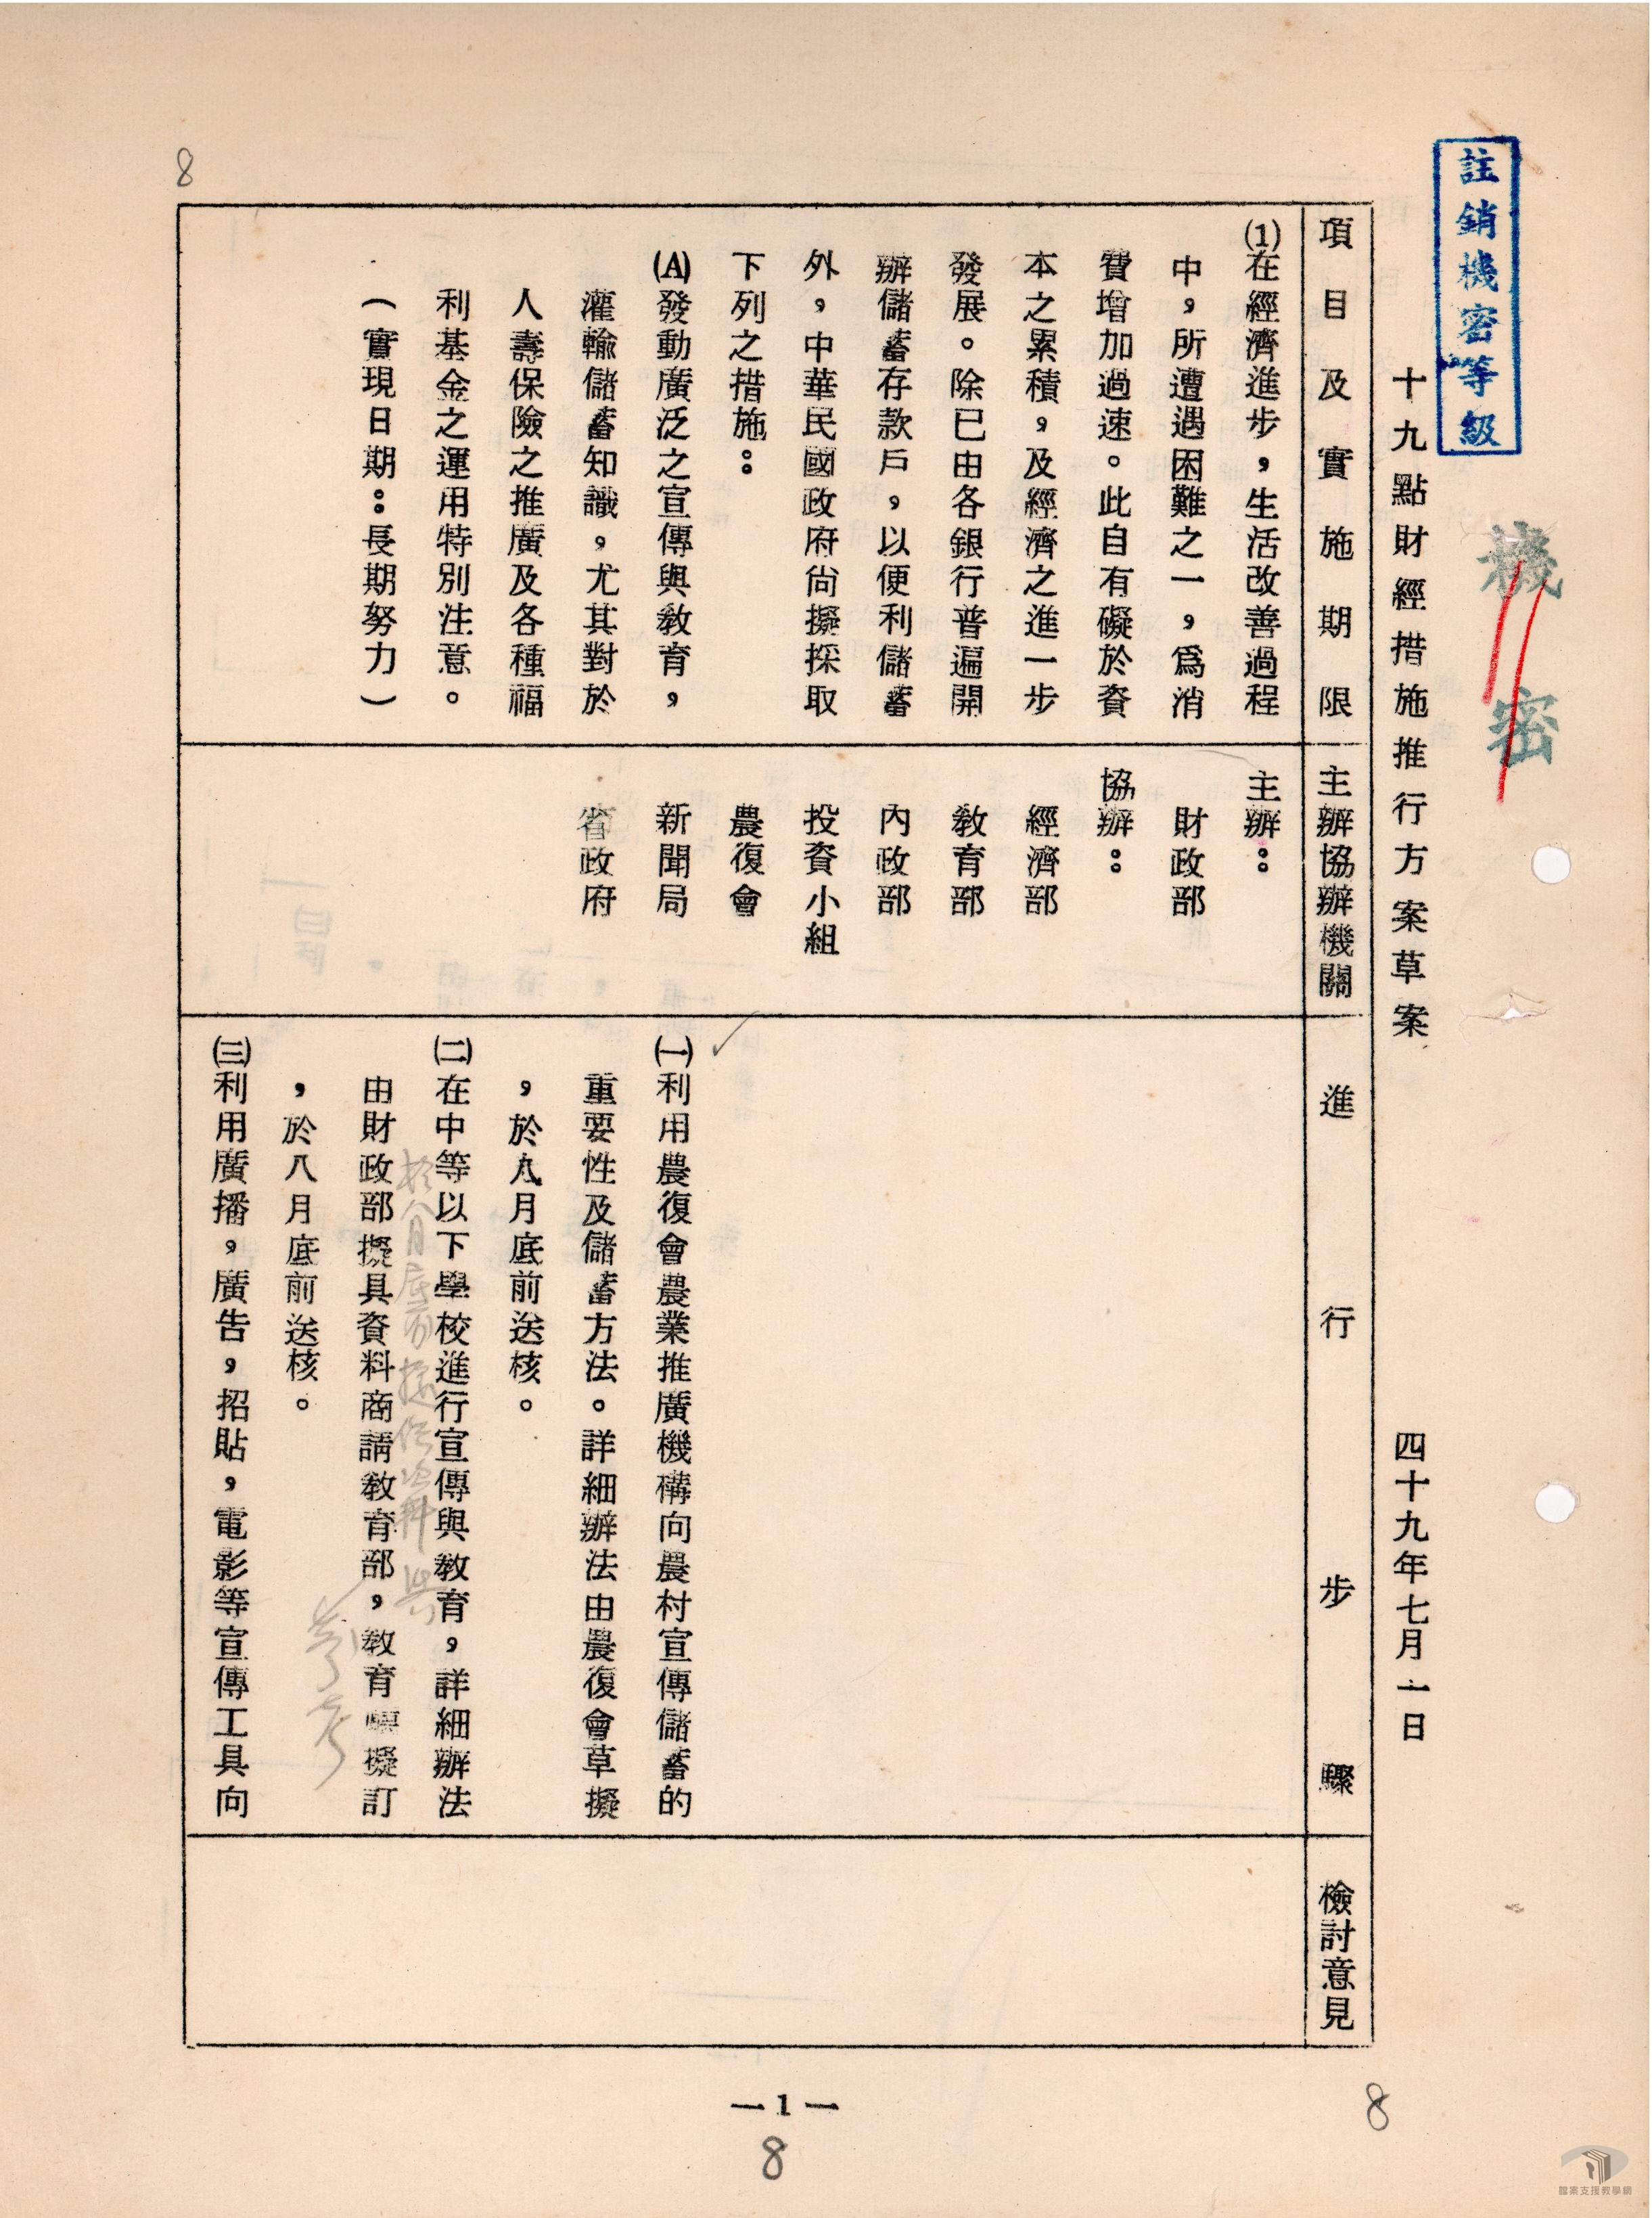 註銷機密等級
機密
十九點財經措施推行方案草案
四十九年七月一日
項目及實施期限
主辦協辦機關
進行步驟
檢討意見
⑴在經濟進步，生活改善過程
中，所遭遇困難之一，爲消
費增加過速。此自有礙於資
本之累積，及經濟之進一步
發展。除已由各銀行普遍開
辦儲蓄存款戶，以便利儲蓄
外，中華民國政府尙擬採取
下列之措施：
(A)發動廣泛之宣傳與敎育，
灌輸儲蓄知識，尤其對於
人壽保險之推廣及各種福
利基金之運用特別注意。
（實現日期：長期努力）
主辦：
財政部
協辦：
經濟部
敎育部
內政部
投資小組
農復會
新聞局
省政府
㈠利用農復會農業推廣機構向農村宣傳儲蓄的
重要性及儲蓄方法。詳細辦法由農復會草擬
，於九月底前送核。
㈡在中等以下學校進行宣傳與敎育，詳細辦法
由財政部擬具資料商請敎育部，敎育擬訂
，於八月底前送核。
於八月底前提供資料與
參考
㈢利用廣播，廣告，招貼，電影等宣傳工具向
8
—1—
8
8
檔案支援教學網